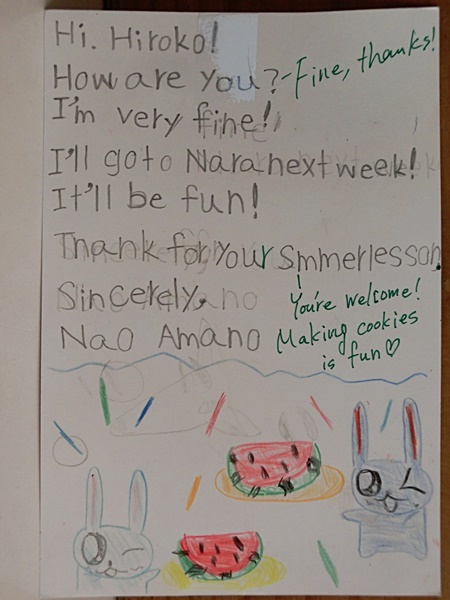 Hi. Hiroko!
How are you? - Fine, thanks!
I'm very fine!
I'll go to Nara next week!
It'll be fun!
Thank for your Smmer lesson.
Sincerely,
You're welcome!
Nao Amano
Making cookies
is fun♡